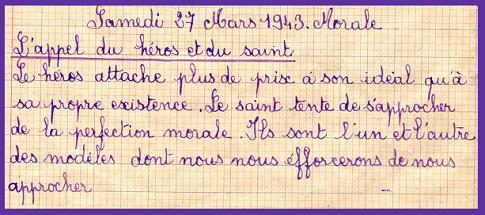 Samedi 27 Mars 1943. Morale
L'appel du héros et du saint
Le héros attache plus de prix à son idéal qu'à
sa propre existence. Le saint tente de s'approcher
de la perfection morale. Ils sont l'un et l'autre
des modèles dont nous nous éfforcerons de nous
approcher